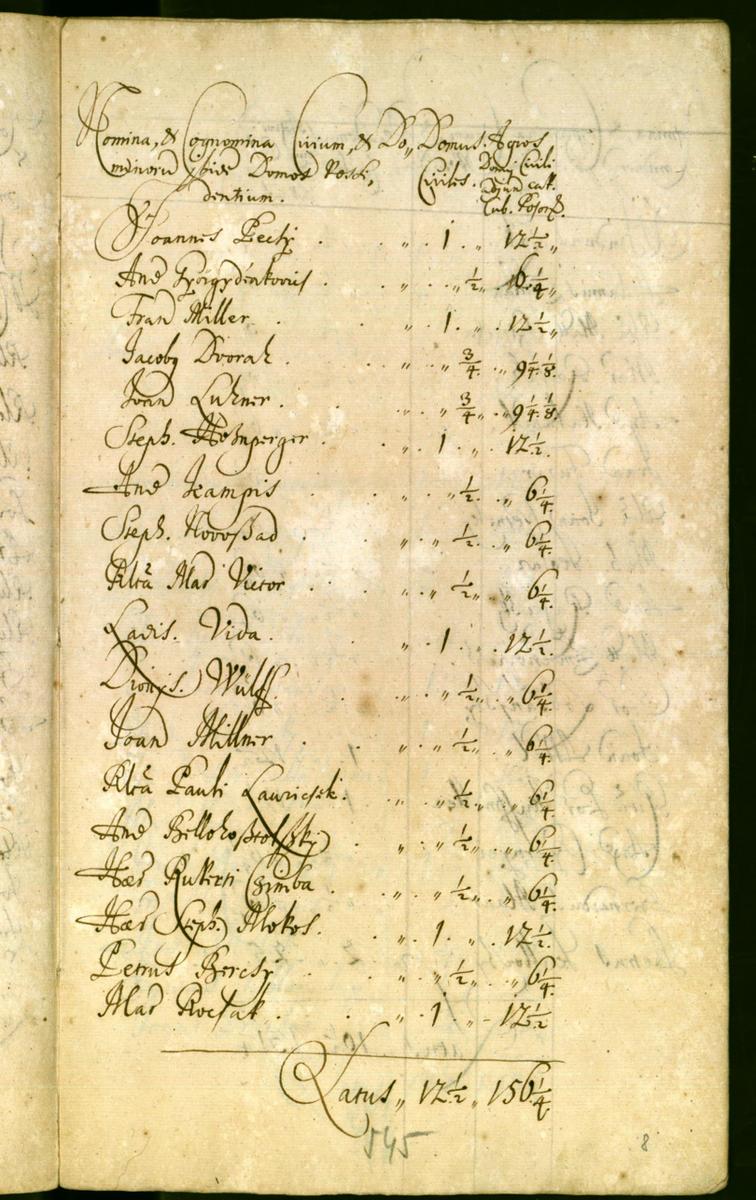 Nomina, & Cognomina Civium, & Do„ Domus. Agros
minorū ibide Domos Possi, Civiles. Domui Civili
dentium. Cub. Poson.
Joannes Pecty . „ . 1 . „ 12 1/2 „
And Györgydeakovis . „ . „ 1/2 „ 6 1/4 „
Fran Miller . „ . 1 . „ . 12 1/2 „
Jacoby Dvorak . „ . „ 3/4 . „ 9 1/4 . 1/8 .
Joan Luzner . „ . „ 3/4 . „ 9 1/4 . 1/8 .
Steph. . „ . 1 . „ . 12 1/2 .
And Krampis . „ . „ 1/2 . „ 6 1/4 .
Steph. Novoßad . „ . „ 1/2 . „ 6 1/4 .
Rltā Mad Victor . „ . „ 1/2 „ . „ 6 1/4 .
Ladis. Vida . „ . 1 . „ . 12 1/2 .
Dionys. Wülff . „ . „ 1/2 „ . „ 6 1/4 .
Joan Millner . „ . „ 1/2 „ . „ 6 1/4 .
Rltā Pauli Lauricsek . „ . „ 1/2 „ . „ 6 1/4 .
And . „ . „ 1/2 „ . „ 6 1/4 .
Hær Rukerti Czimba . „ . „ 1/2 „ . „ 6 1/4 .
Hær Steph. Mokos . „ . 1 . „ . 12 1/2 .
Petrus Bercsy . „ . „ 1/2 „ . „ 6 1/4 .
Mad Rocsak . „ . 1 . „ - 12 1/2
Latus „ 12 1/2 „ 156 1/4
545
8